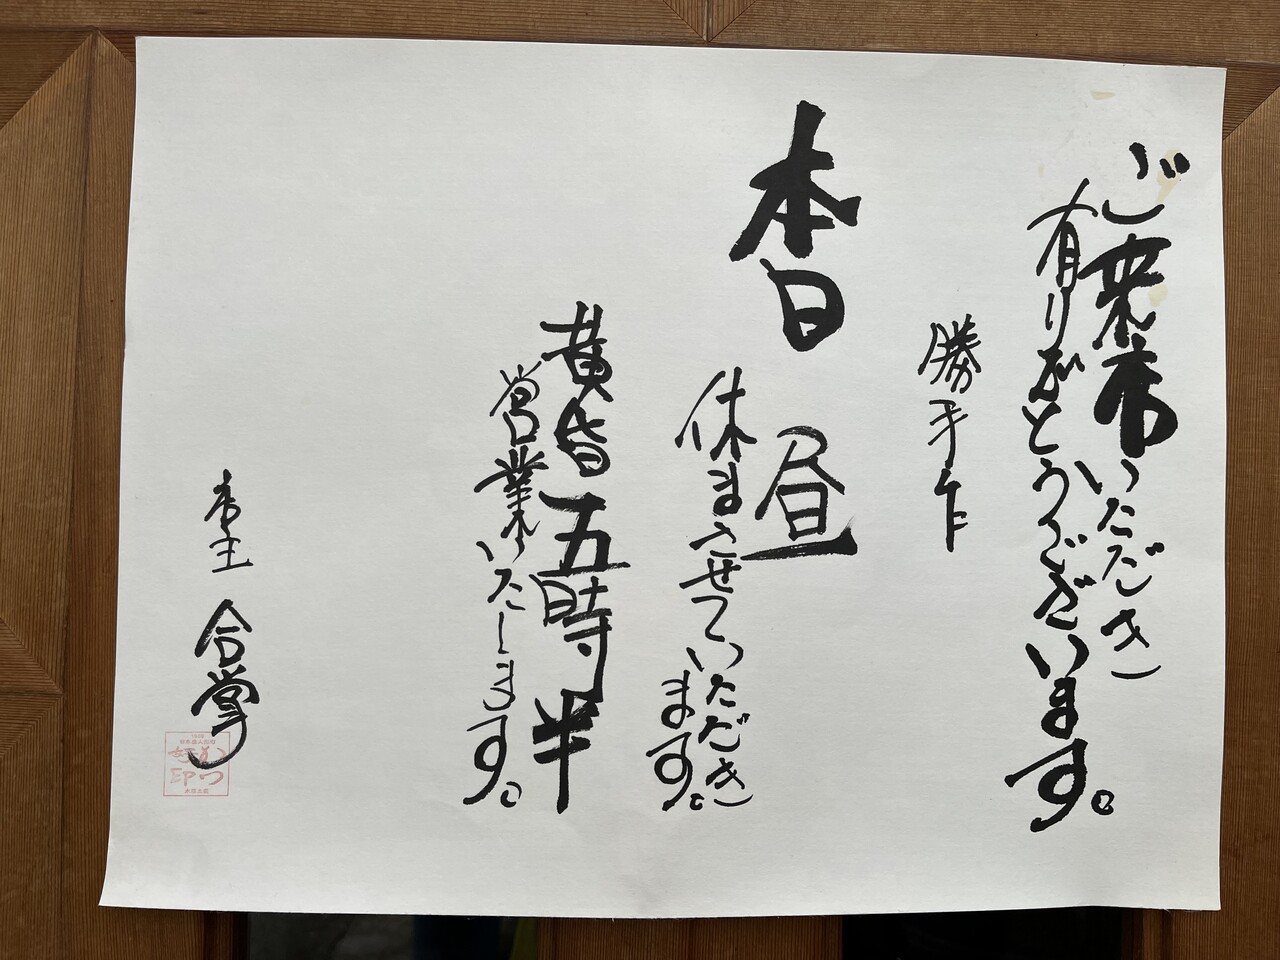 ご来席いただき
有りがとうございます。
勝手乍
本日 昼
休ませていただき
ます。
黄昏五時半
営業いたします。
合掌